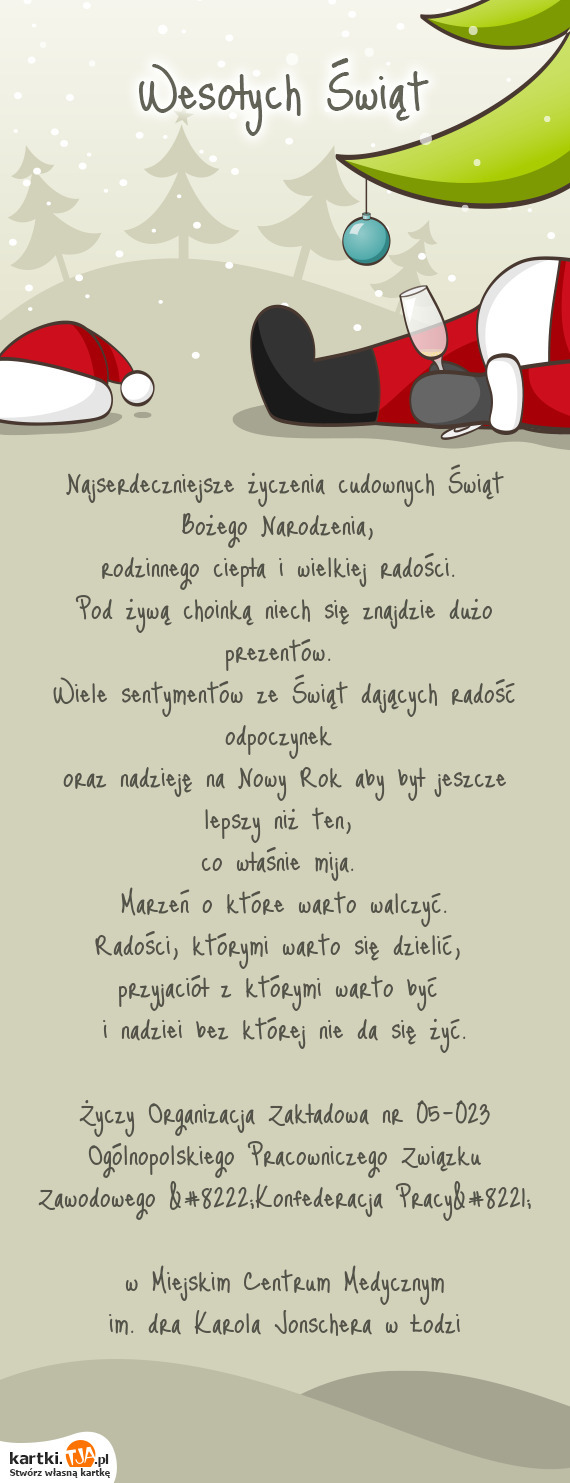 Wesołych Świąt
Najserdeczniejsze życzenia cudownych Świąt
Bożego Narodzenia,
rodzinnego ciepła i wielkiej radości.
Pod żywą choinką niech się znajdzie dużo
prezentów.
Wiele sentymentów ze Świąt dających radość
odpoczynek
oraz nadzieję na Nowy Rok aby był jeszcze
lepszy niż ten,
co właśnie mija.
Marzeń o które warto walczyć.
Radości, którymi warto się dzielić,
przyjaciół z którymi warto być
i nadziei bez której nie da się żyć.
Życzy Organizacja Zakładowa nr 05-023
Ogólnopolskiego Pracowniczego Związku
Zawodowego &#8222;Konfederacja Pracy&#8221;
w Miejskim Centrum Medycznym
im. dra Karola Jonschera w Łodzi
kartki.TJA.pl
Stwórz własną kartkę